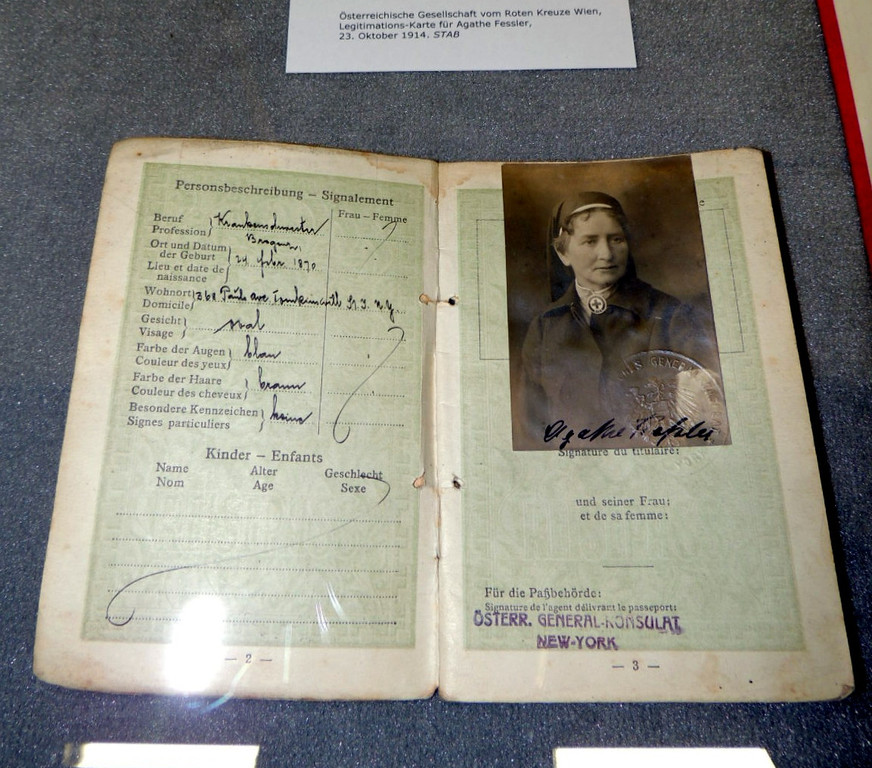 Österreichische Gesellschaft vom Roten Kreuze Wien,
Legitimations-Karte für Agathe Fessler,
23. Oktober 1914. STAB
Personsbeschreibung – Signalement
Frau – Femme
Beruf
Profession
Krankenschwester
Ort und Datum
der Geburt
Lieu et date de
naissance
Bregenz,
24. Febr. 1870
Wohnort
Domicile
360 Pauls ave
Gesicht
Visage
oval
Farbe der Augen
Couleur des yeux
blau
Farbe der Haare
Couleur des cheveux
braun
Besondere Kennzeichen
Signes particuliers
keine
Kinder – Enfants
Name Alter Geschlecht
Nom Age Sexe
— 2 —
Agathe Fessler
Signature du titulaire:
und seiner Frau:
et de sa femme:
Für die Paßbehörde:
Signature de l'agent délivrant le passeport:
ÖSTERR. GENERAL-KONSULAT
NEW-YORK
— 3 —